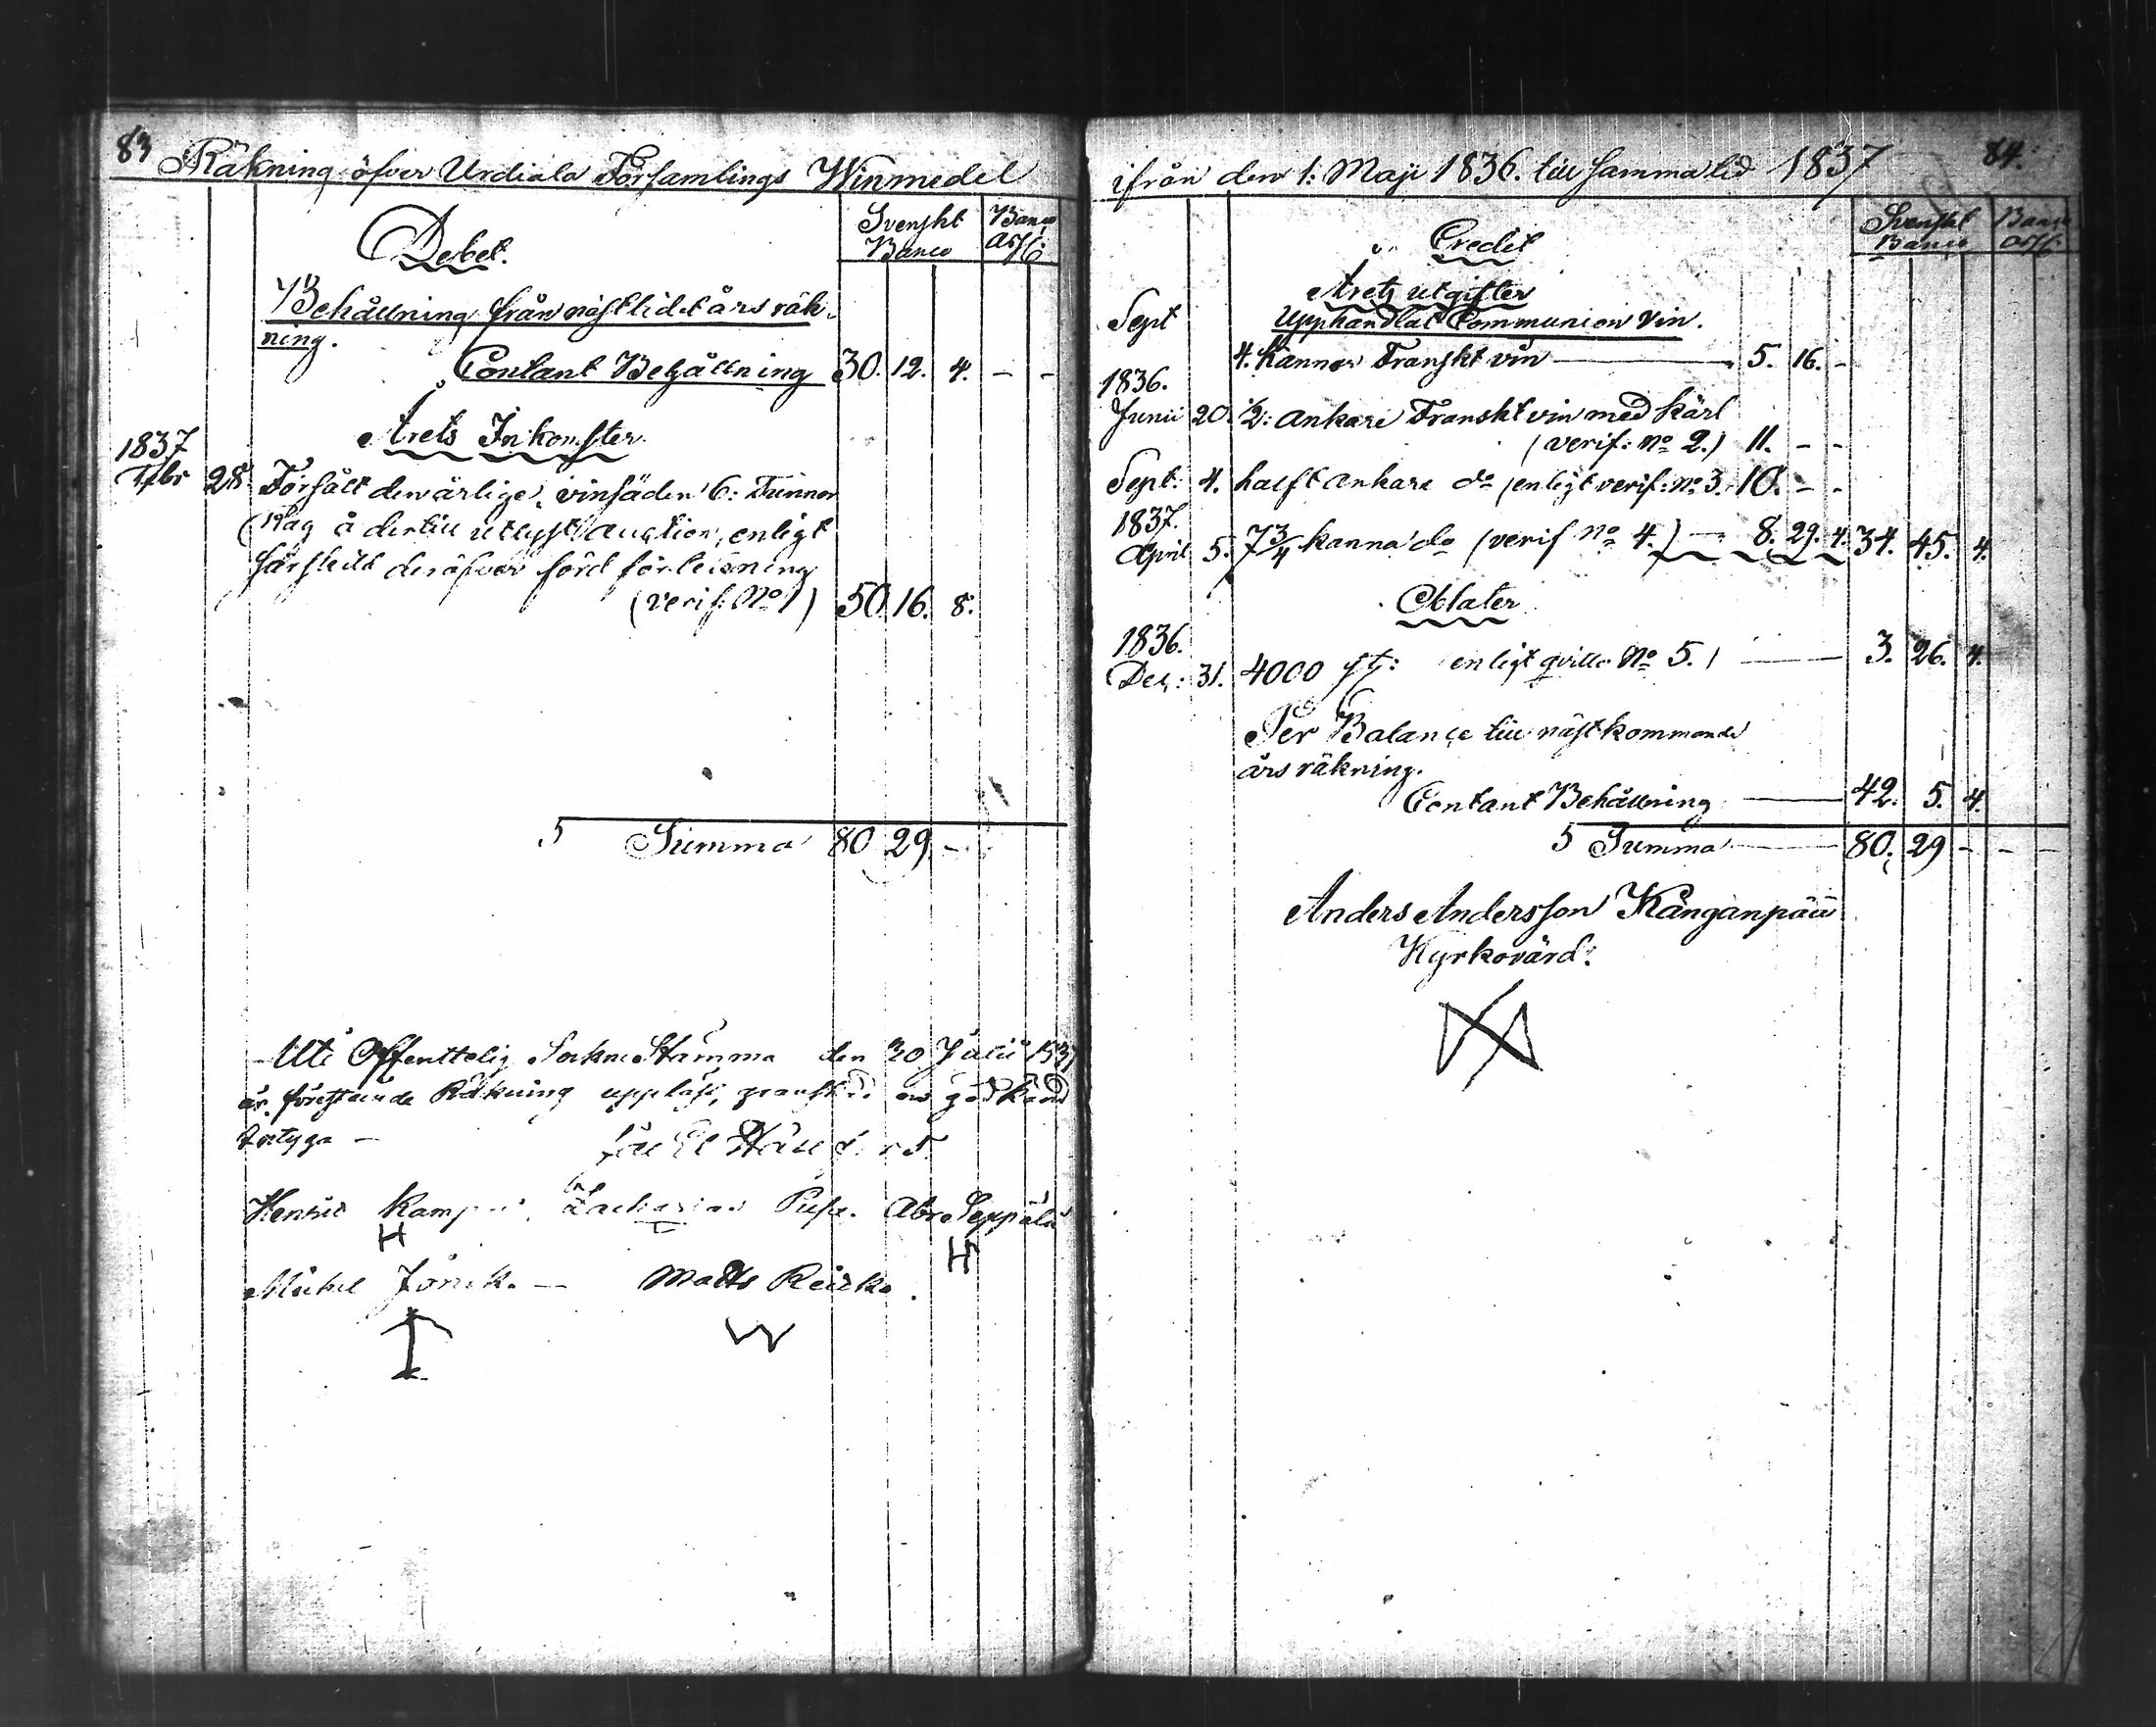 83
Räkning öfver Urdiala Församlings Winmedel
Debet.
Svenskt Banco
Banco
Behållning från nästlidet års räk-
ning.
Contant Behållning 30. 12. 4. - -
Årets Inkomster
1837
Febr 28 Försålt den årlige vinsäden 6: Tunnor
Råg å dertill utlyst auction, enligt
särskild deröfver förd förteckning
(verif: No 1) 50. 16. 8.
5 Summa 80 29 -
Uti Offenttelig Sockne Stämma den 30 Julii 1837
är förestående Räkning uppläst, granskad och godkänd
betyga -
Henric Zacharias Abr. Seppälä
H H
Michel Matts
84.
ifrån den 1: Maji 1836. till samma tid 1837
Credit
Svenskt Banco
Banco
Årets utgifter
Sept Upphandlat Communion Vin.
4. Kannor Franskt vin 5. 16. -
1836.
Junii 20. ½: Ankare Franskt vin med Kärl
(verif: No 2.) 11. - -
Sept: 4. halft Ankare do (enligt verif: No 3. 10. - -
1837.
April 5. 7 3/4 kanna do (verif No 4.) 8. 29. 4. 34. 45. 4.
Oblater
1836.
Dec: 31. 4000 st: enligt qvitto No 5.) 3. 26. 4.
Per Balance till nästkommande
års räkning.
Contant Behållning 42. 5. 4.
5 Summa 80. 29 - - -
Anders Andersson Kånganpää
Kyrkovärd.